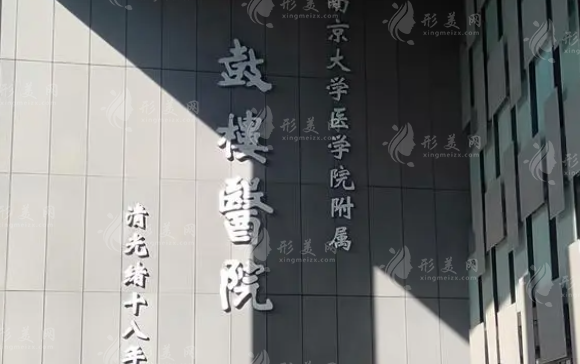 南京大学医学院附属
鼓樓醫院
清光绪十八年
形美网
xingmeizx.com